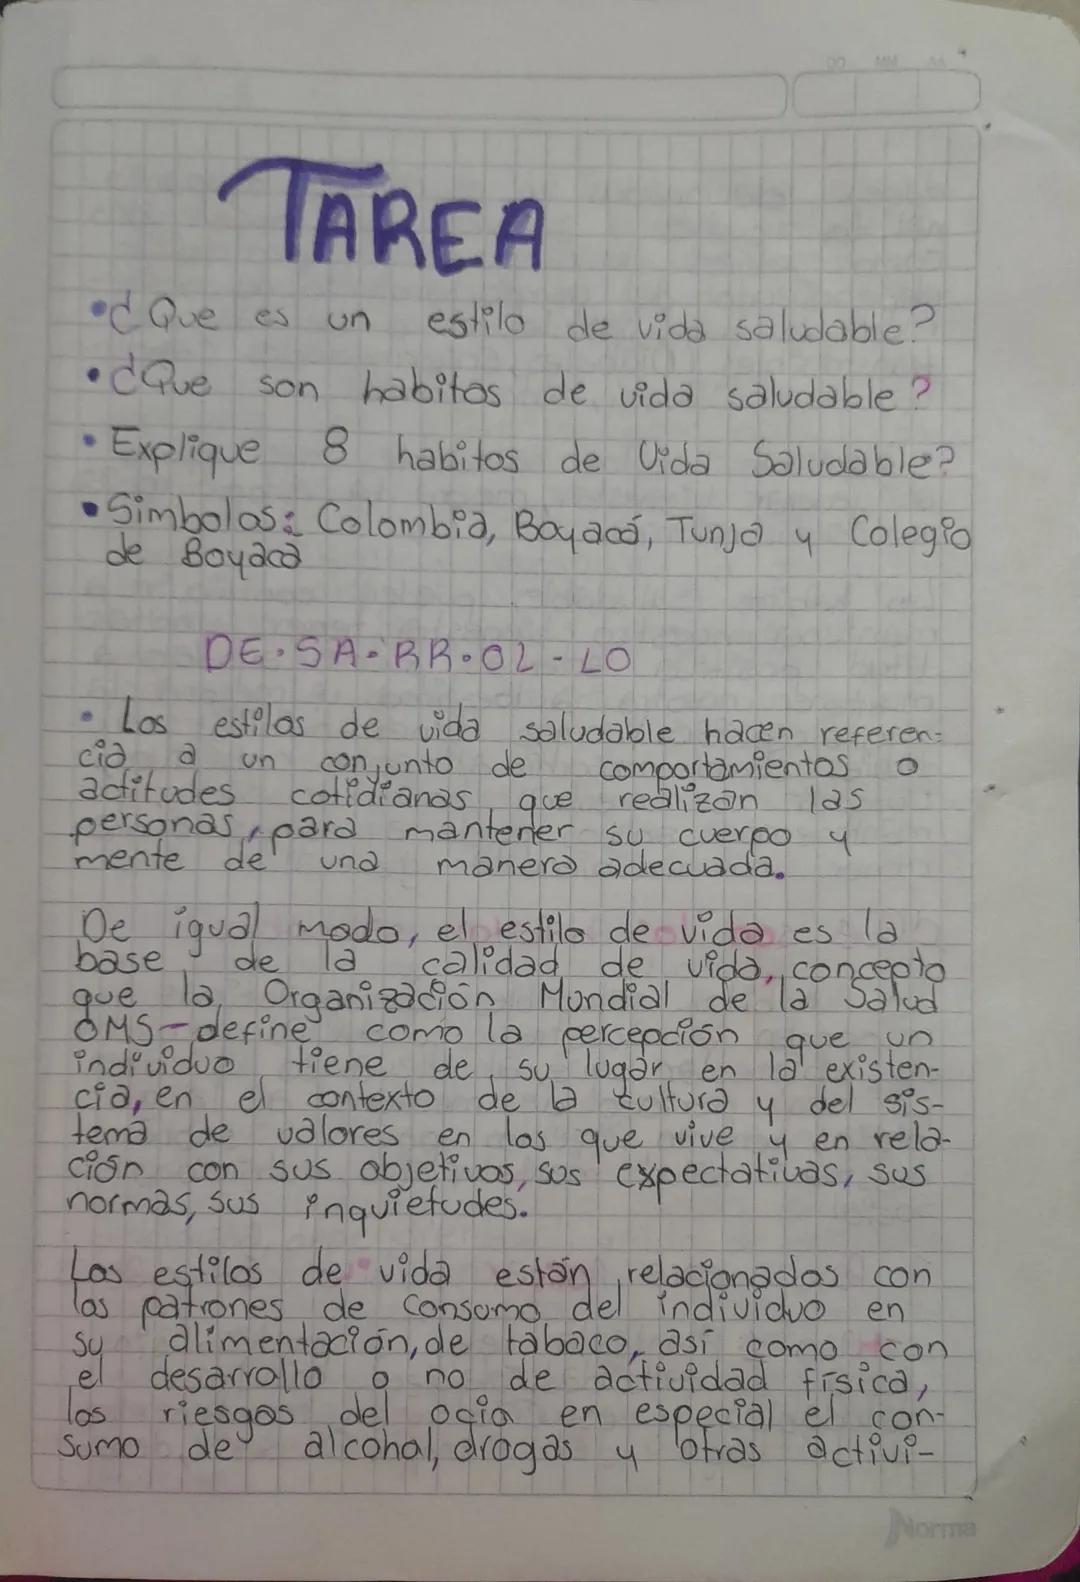 DD MM AA
TAREA
• ¿Que es un estilo de vida saludable?
• ¿Que son habitos de vida saludable?
• Explique 8 habitos de Vida Saludable?
• Simbolos: Colombia, Boyacá, Tunja y Colegio
de Boyaca
DE·SA·RR·OL-LO
• Los estilos de vida saludable hacen referen-
cia a un conjunto de comportamientos o
actitudes cotidianas, que realizan las
personas, para mantener su cuerpo y
mente de una manera adecuada.
De igual modo, el estilo de vida es la
base de la calidad de vida, concepto
que la Organización Mundial de la Salud
OMS-define como la percepción que un
individuo tiene de su lugar en la existen-
cia, en el contexto de la cultura y del sis-
tema de valores en los que vive y en rela-
ción con sus objetivos, sus expectativas, sus
normas, sus inquietudes.
Los estilos de vida están relacionados con
los patrones de consumo del individuo en
su alimentación, de tabaco, así como con
el desarrollo o no de actividad física,
los riesgos del ocio en especial el con-
sumo de alcohol, drogas y otras activi-
Norma